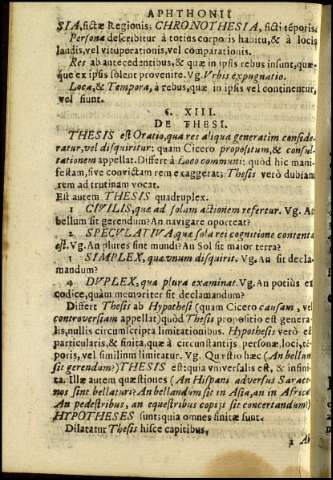 APHTHONII
SIA, fictæ Regionis; CHRONOTHESIA, ficti tẽporis.
Personæ describũtur à totius corporis habitu, & à locis
laudis, vel vituperationis, vel comparationis.
Res ab antecedentibus, & quæ in ipsis rebus insunt, quæ-
que ex ipsis solent provenire. Vg. Vrbis expugnatio.
Loca, & Tempora, à rebus, quæ in ipsis vel continentur,
vel fiunt.
§. XIII.
DE THESI.
THESIS est Oratio, qua res aliqua generatim conside-
ratur, vel disquiritur: quam Cicero propositum, & consul-
tationem appellat. Differt à Loco communi: quòd hic mani-
festam, sive convictam rem exaggerat; Thesis verò dubiam
rem ad trutinam vocat.
Est autem THESIS quadruplex.
1 CIVILIS, quæ ad solam actionem refertur. Vg. An
bellum sit gerendum? An navigare oporteat?
2 SPECULATIVA, quæ sola rei cognitione contenta
est. Vg. An plures sint mundi? An Sol sit maior terra?
3 SIMPLEX, quæ unum disquirit. Vg. An sit decla-
mandum?
4 DVPLEX, quæ plura examinat. Vg. An potius ex
codice, quàm memoriter sit declamandum?
Differt Thesis ab Hypothesi (quam Cicero causam, vel
controversiam appellat) quòd Thesis propositio est genera-
lis, nullis circumscripta limitationibus. Hypothesis verò est
particularis, & finita, quæ à circunstantijs personæ, loci, tẽ-
poris, vel similium limitatur. Vg. Quæstio hæc (An bellum
sit gerendum?) THESIS est: quia vniversalis est, & infini-
ta. Illæ autem quæstiones (An Hispani adversus Sarace-
nos sint bellaturi? An bellandum sit in Asia, an in Africa?
An pedestribus, an equestribus copijs sit concertandum?)
HYPOTHESES sunt: quia omnes finitæ sunt.
Dilatatur Thesis hisce capitibus.